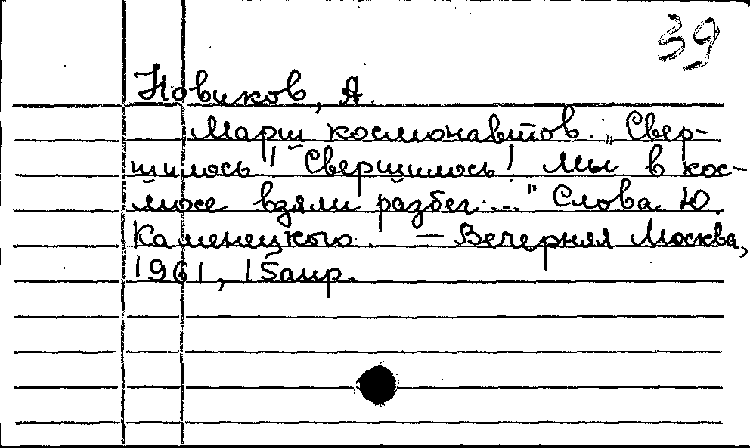 39
Новиков, А.
Марш космонавтов. „Свер-
шилось! Свершилось! Мы в кос-
мосе взяли разбег..." Слова Ю.
Каменецкого. — Вечерняя Москва,
1961, 15 апр.